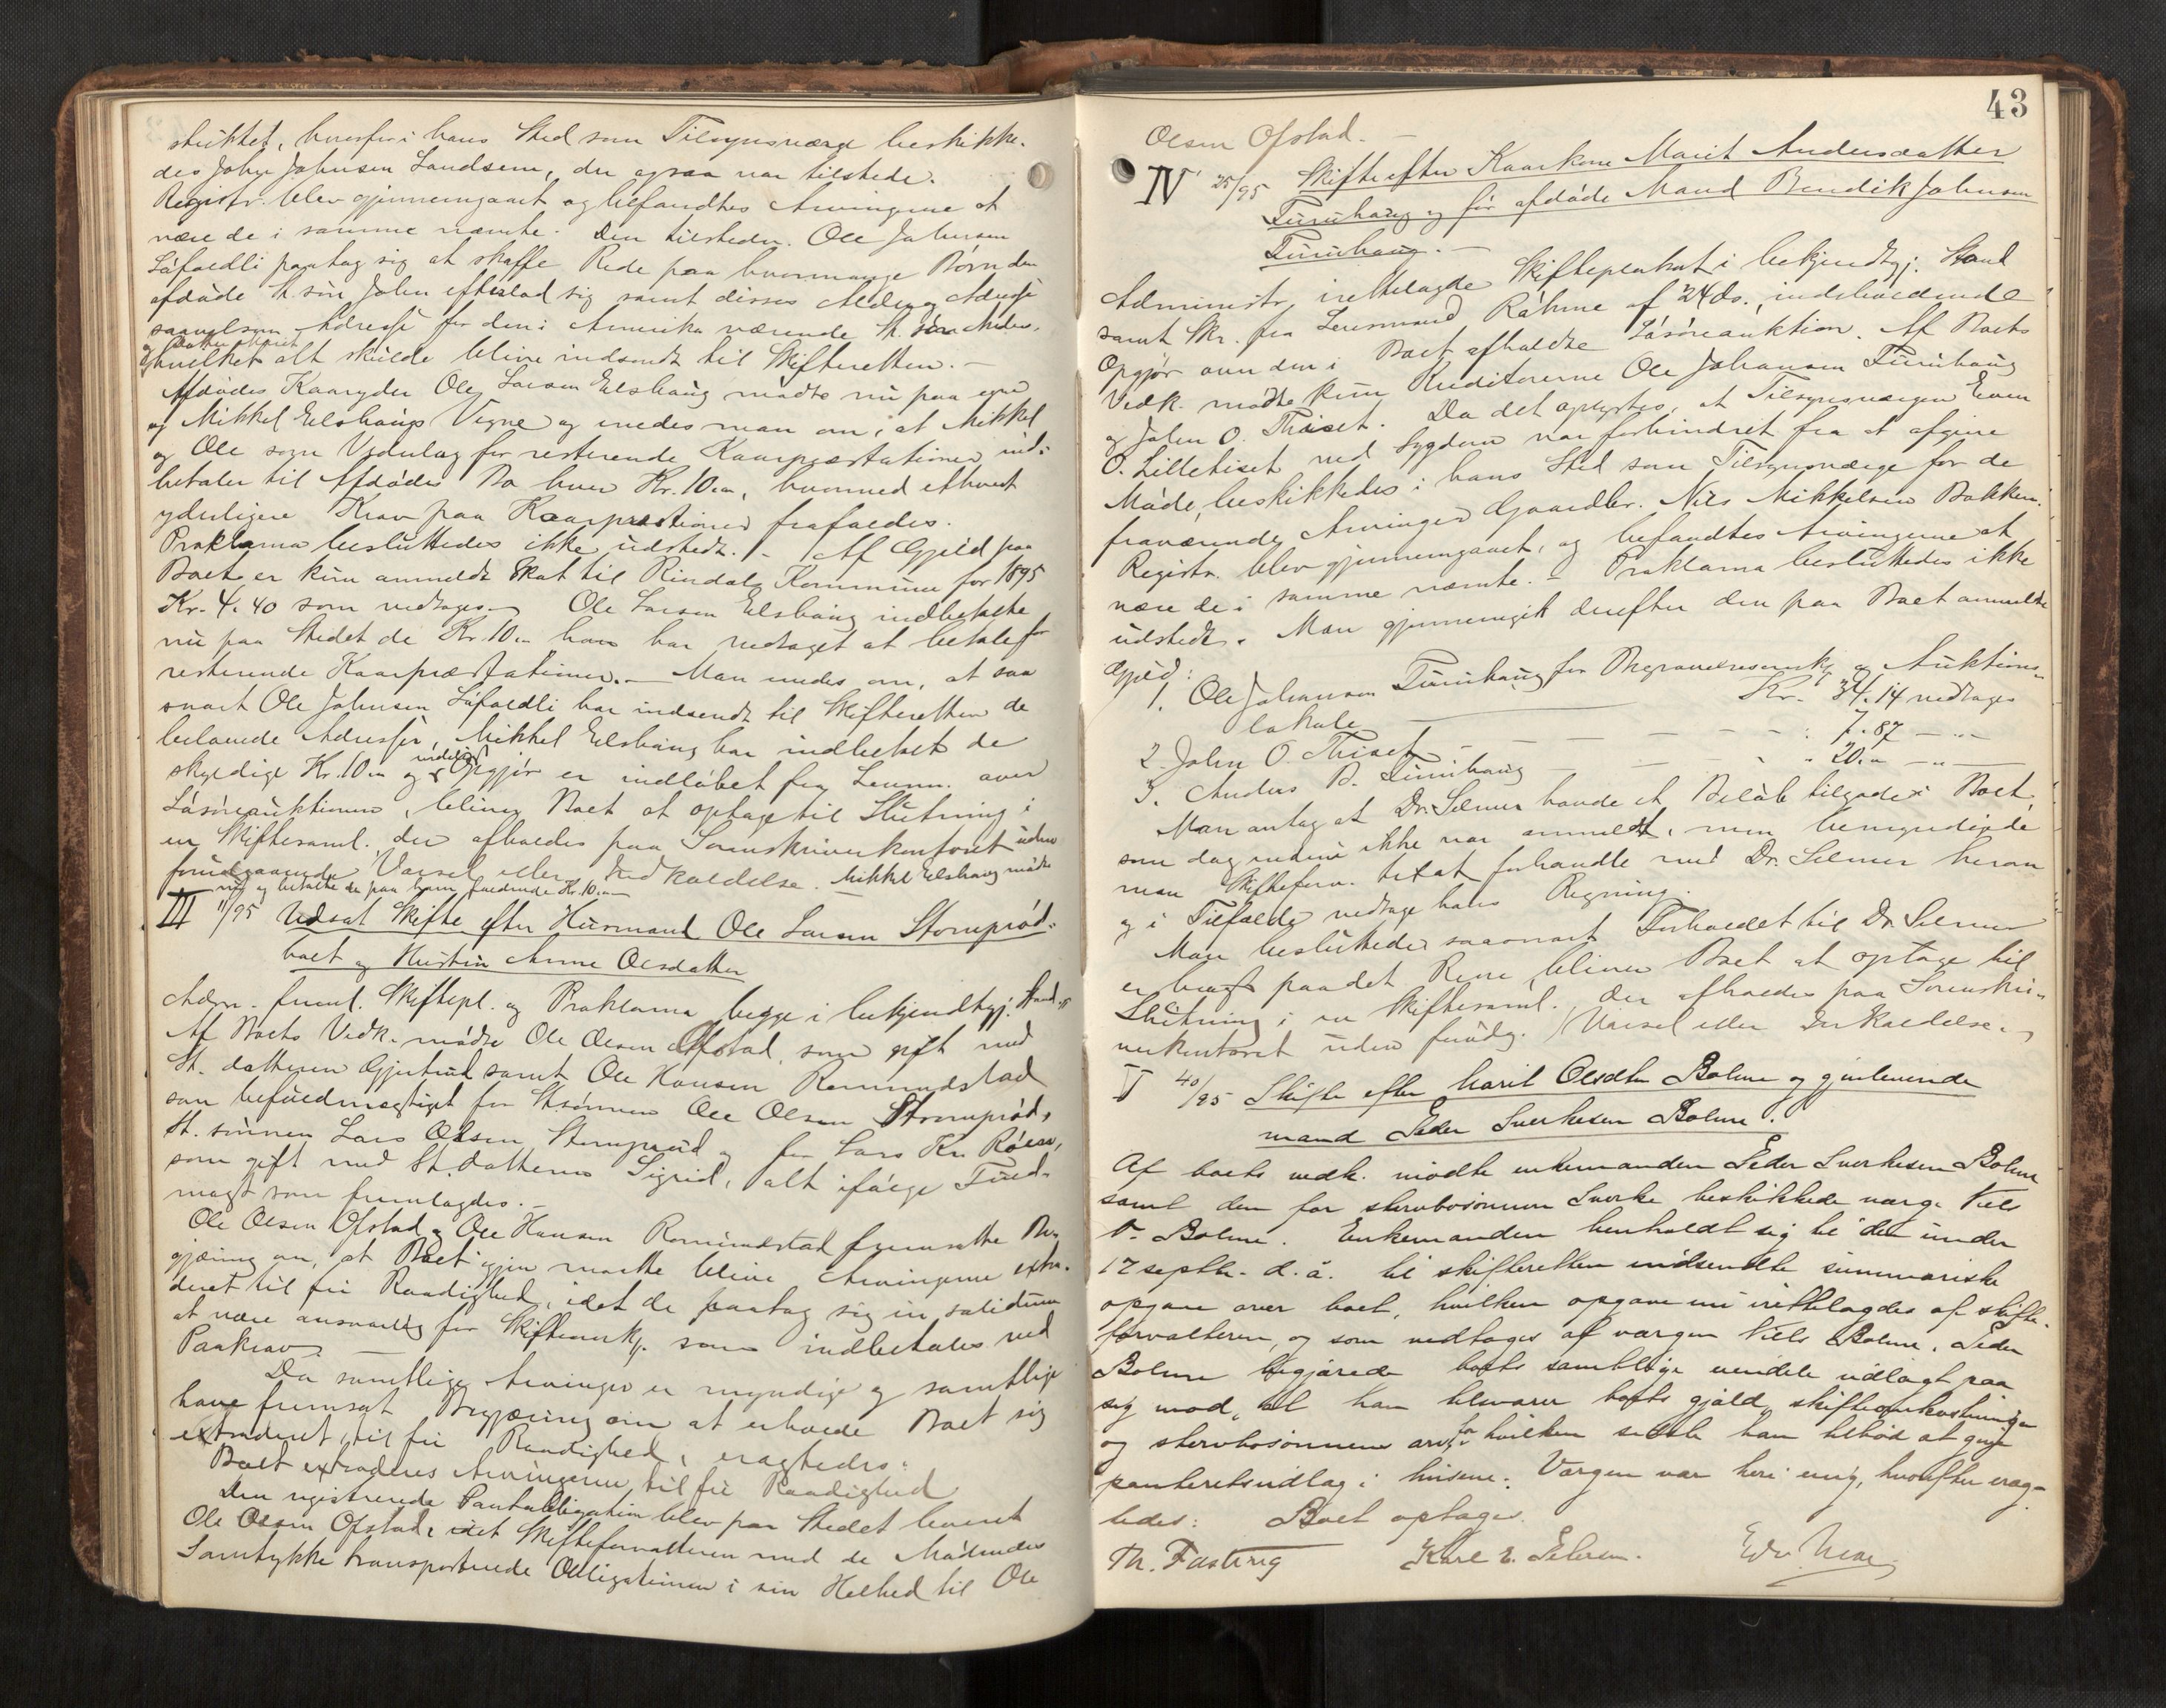 skikket, hvorfor i hans Sted som Tilsynsværge beskikke-
des John Johnsen Landsem, der ogsaa var tilstede.
Registr. blev gjennemgaaet og befandtes Arvingerne at
være de i samme nævnte. Den tilstedev. Ole Johnsen
Løfaldli paatog sig at skaffe Rede paa hvormange Børn den
afdøde St. søn John efterlod sig samt disses Alder og Adresse
saavelsom Adresse for den i Amerika værende St. søn Anders,
og Datter Marit
hvilket alt skulde blive indsendt til Skifteretten. -
Afdødes Kaaryder Ole Larsen Elshaug mødte nu paa egne
og Mikkel Elshaugs Vegne og enedes man om, at Mikkel
og Ole som Vederlag for resterende Kaarpræstationer ind-
betaler til Afdødes Bo hver Kr. 10.00, hvormed ethvert
yderligere Krav paa Kaarpræstationer frafaldes.
Proklama besluttedes ikke udstedt. - Af Gjeld paa
Boet er kun anmeldt Skat til Rindals Kommune for 1895
Kr. 4.40 som vedtoges. Ole Larsen Elshaug indbetalte
nu paa Stedet de Kr. 10.00 han har vedtaget at betale for
resterende Kaarpræstationer. - Man enedes om, at saa
snart Ole Johnsen Løfaldli har indsendt til Skifteretten de
belovede Adresser, Mikkel Elshaug har indbetalt de
skyldige Kr. 10.00 og endeligt Opgjør er indløbet fra Lensm. over
Løsøreauktionen, bliver Boet at optage til Slutning i
en Skiftesaml. der afholdes paa Sorenskriverkontoret uden
forudgaaende Varsel eller Indkaldelse. Mikkel Elshaug mødte
nu og betalte de paa ham faldende Kr. 10.00
III 11/95 Udsat Skifte efter Husmand Ole Larsen Stomprød-
boet og Hustru Anne Olsdatter
Adm. freml. Skiftepl. og Proklama begge i bekjendtgj. Stand.
Af Boets Vedk. mødte Ole Olsen Ofstad, som gift med
St. datteren Gjertrud samt Ole Hansen Romundstad
som befuldmægtiget for St.sønnen Ole Olsen Stomprød,
St. sønnen Lars Olsen Stomprød og for Lars Kr. Røen,
som gift med St.datteren Sigrid, alt ifølge Fuld-
magt som fremlagdes. -
Ole Olsen Ofstad og Ole Hansen Romundstad fremsatte Be-
gjæring om, at Boet igjen maatte blive Arvingerne extra-
deret til fri Raadighed, idet de paatog sig in solidum
at være ansvarlig for Skifteomk. som indbetales ved
Paakrav. -
Da samtlige Arvinger er myndige og samtlige
have fremsat Begjæring om at erholde Boet sig
extraderet til fri Raadighed, eragtedes:
Boet extraderes Arvingerne til fri Raadighed
Den registrerede Pantobligation blev paa Stedet leveret
Ole Olsen Ofstad, idet Skifteforvalteren med de Mødendes
Samtykke transporterede Obligationen i sin Helhed til Ole
43
Olsen Ofstad. -
IV 25/95 Skifte efter Kaarkone Marit Andersdatter
Furuhaug og før afdøde Mand Bendik Johnsen
Furuhaug. -
Administr. irettelagde Skifteplakat i bekjendtgj. Stand
samt Skr. fra Lensmand Råhme af 24 ds., indeholdende
Opgjør over den i Boet afholdte Løsøreauktion. Af Boets
Vedk. mødte kun Kreditorerne Ole Johansen Furuhaug
og John O. Thiset. Da det oplystes, at Tilsynsværgen Even
O. Lillethiset ved Sygdom var forhindret fra at afgive
Møde, beskikkedes i hans Sted som Tilsynsværge for de
fraværende Arvinger Gaardbr. Nils Mikkelsen Bakken.
Registr. blev gjennemgaaet, og befandtes Arvingerne at
være de i samme nævnte. - Proklama besluttedes ikke
udstedt. Man gjennemgik derefter den paa Boet anmeldte
Gjeld:
1. Ole Johansen Furuhaug for Begravelsesomk. og Auktions-
lokale — Kr. 34.14 vedtoges
2. John O. Thiset - - - - - - " 7.87 — " —
3. Anders B. Furuhaug - - - - " 20.00 — " —
Man antog at Dr. Selmer havde et Beløb tilgode i Boet,
som dog endnu ikke var anmeldt, men bemyndigede
man Skifteforv. til at forhandle med Dr. Selmer herom
og i Tilfælde vedtage hans Regning.
Man besluttede saasnart Forholdet til Dr. Selmer
er bragt paa det Rene, bliver Boet at optage til
Slutning i en Skiftesaml. der afholdes paa Sorenskri-
verkontoret uden forudg. Varsel eller Indkaldelse.
V 40/95 Skifte efter Marit Olsdtr Bolme og gjenlevende
mand Peder Sverkesen Bolme.
Af boets vedk. mødte enkemanden Peder Sverkesen Bolme
samt den for stervbosønnen Sverke beskikkede værge Niels
P. Bolme. Enkemanden henholdt sig til den under
17 septbr. d. å. til skifteretten indsendte summariske
opgave over boet, hvilken opgave nu irettelagdes af skifte-
forvalteren, og som vedtoges af værgen Niels Bolme. Peder
Bolme begjærede boets samtlige eiendele udlagt paa
sig mod, at han tilsvarer boets gjæld, skifteomkostninger
og stervbosønnens arv, for hvilken sidste han tilbød at give
panteretsudlag i husene. Værgen var heri enig, hvorefter erag-
tedes: Boet optages.
Th. Fasting Karl E. Pedersen. Edv.